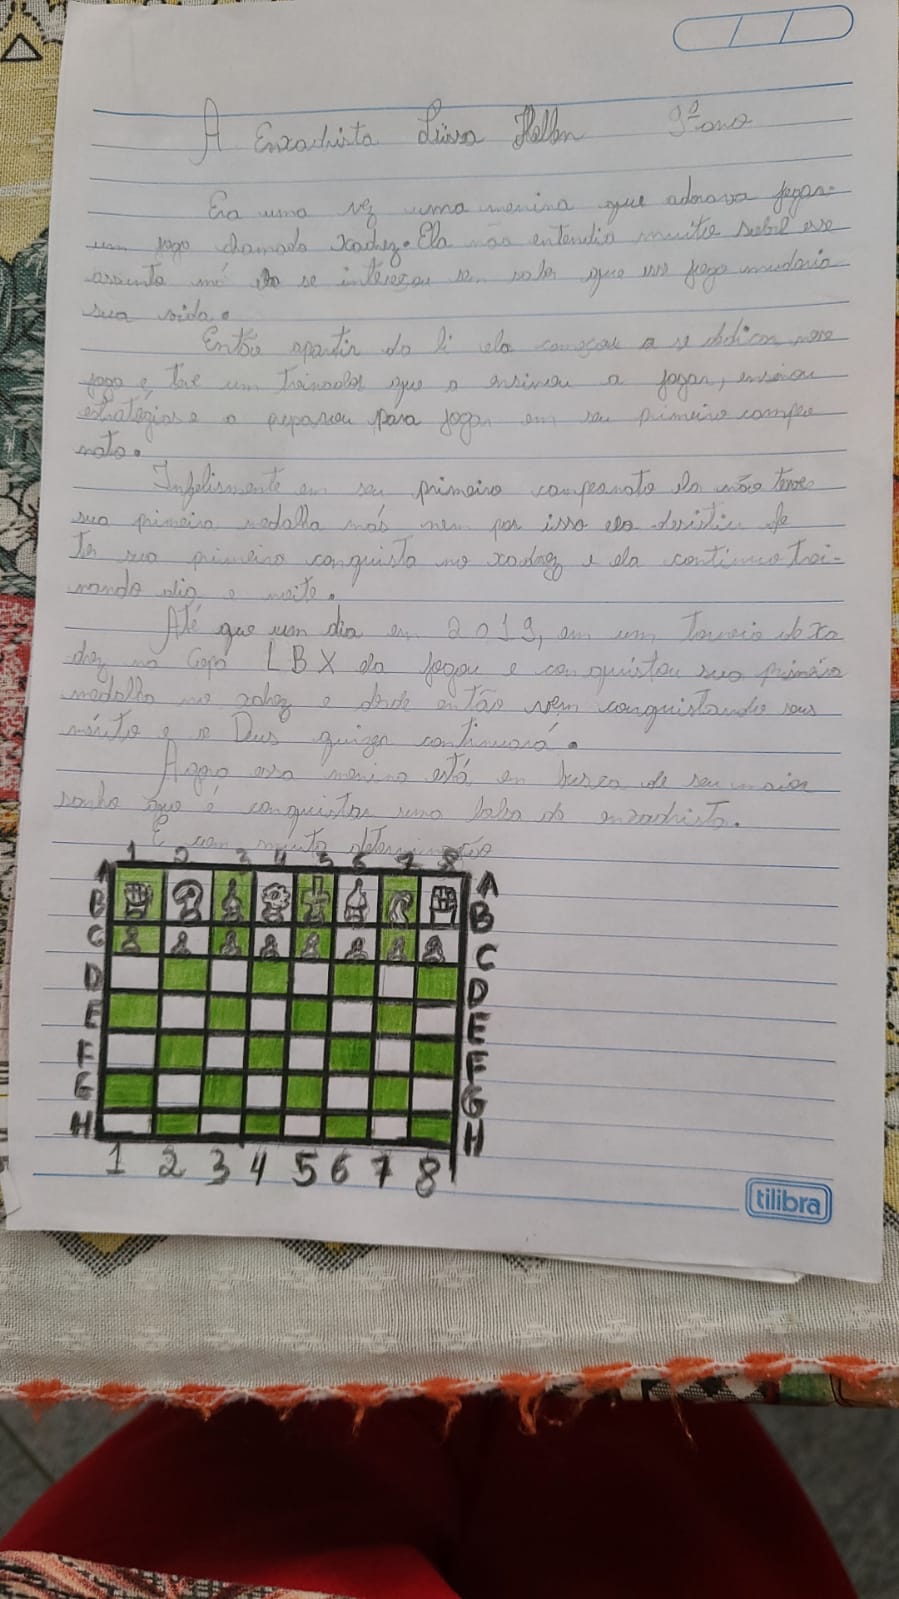 A Enxadrista Lüssa Hellen 9º ano
Era uma vez uma menina que adorava jogar
um jogo chamado xadrez. Ela não entendia muito sobre esse
assunto más ela se intereçou sem saber que esse jogo mudaria
sua vida.
Então apartir da li ela começou a se dedicar nesse
jogo e teve um treinador que a ensinou a jogar, ensinou
estratégias e a preparou para jogar em seu primeiro campeo
nato.
Infelismente em seu primeiro campeonato ela não teve
sua primeira medalha más nem por isso ela desistiu de
ter sua primeira conquista no xadrez e ela continuo trei-
nando dia e noite.
Até que um dia em 2019, em um torneio de xa
drez na Copa LBX ela jogou e conquistou sua primeira
medalha no xadrez e desde então vem conquistando seus
mérito e se Deus quizer continuará.
Agora essa menina está em busca de seu maior
sonho que é conquistar uma bolsa de enxadrista.
E com muita determinação
1 2 3 4 5 6 7 8
A A
B B
C C
D D
E E
F F
G G
H H
1 2 3 4 5 6 7 8
tilibra